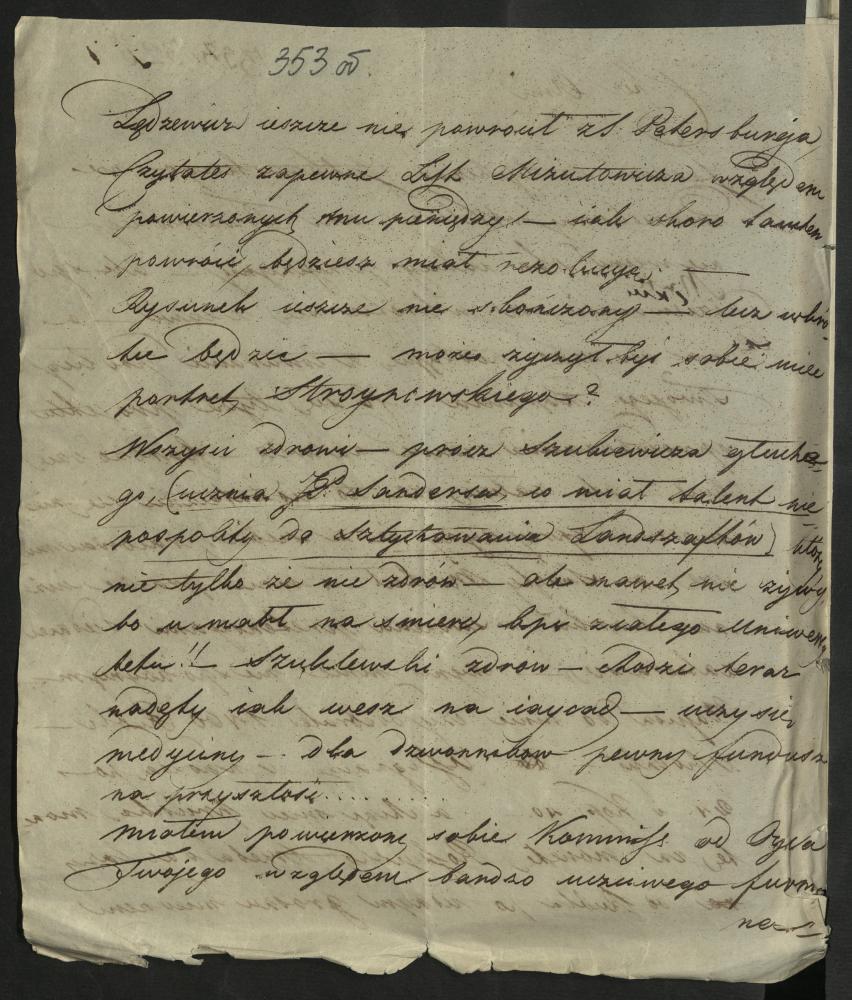 353 od.
Lędzewicz ieszcze nie powrócił z S. Petersburga,
Czytałeś zapewne List Mizutowicza względem
powierzonych mu pieniędzy! — iak skoro tamten
powróci będziesz miał rezolucyą.
Rysunek ieszcze nie skończony — lecz wkró-
tce będzie — może życzył byś sobie mieć
portret Stroynowskiego?
Wszyscy zdrowi — prócz Szubiewicza głuche-
go, (ucznia JP. Sandersa, co miał talent nie
pospolity do sztychowania Landszaftów) który
nie tylko że nie zdrów — ale nawet nie żywy,
bo umarł na śmierć, kpi z całego Uniwersy
tetu!! — Szublewski zdrów — chodzi teraz
nadęty iak wesz na iaycach — uczy się
medycyny — dla dzwonników pewny fundusz
na przyszłość.....
Miałem powierzony sobie Kommiss od Oyca
Twojego względem bardzo uczciwego furma
na —